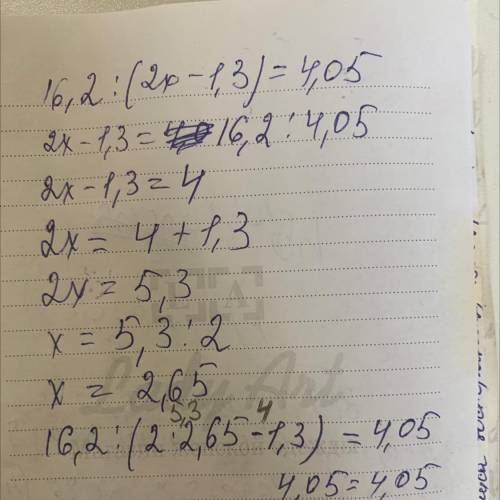 16,2 : (2x - 1,3) = 4,05
2x - 1,3 = 16,2 : 4,05
2x - 1,3 = 4
2x = 4 + 1,3
2x = 5,3
x = 5,3 : 2
x = 2,65
5,3 4
16,2 : (2 · 2,65 - 1,3) = 4,05
4,05 = 4,05